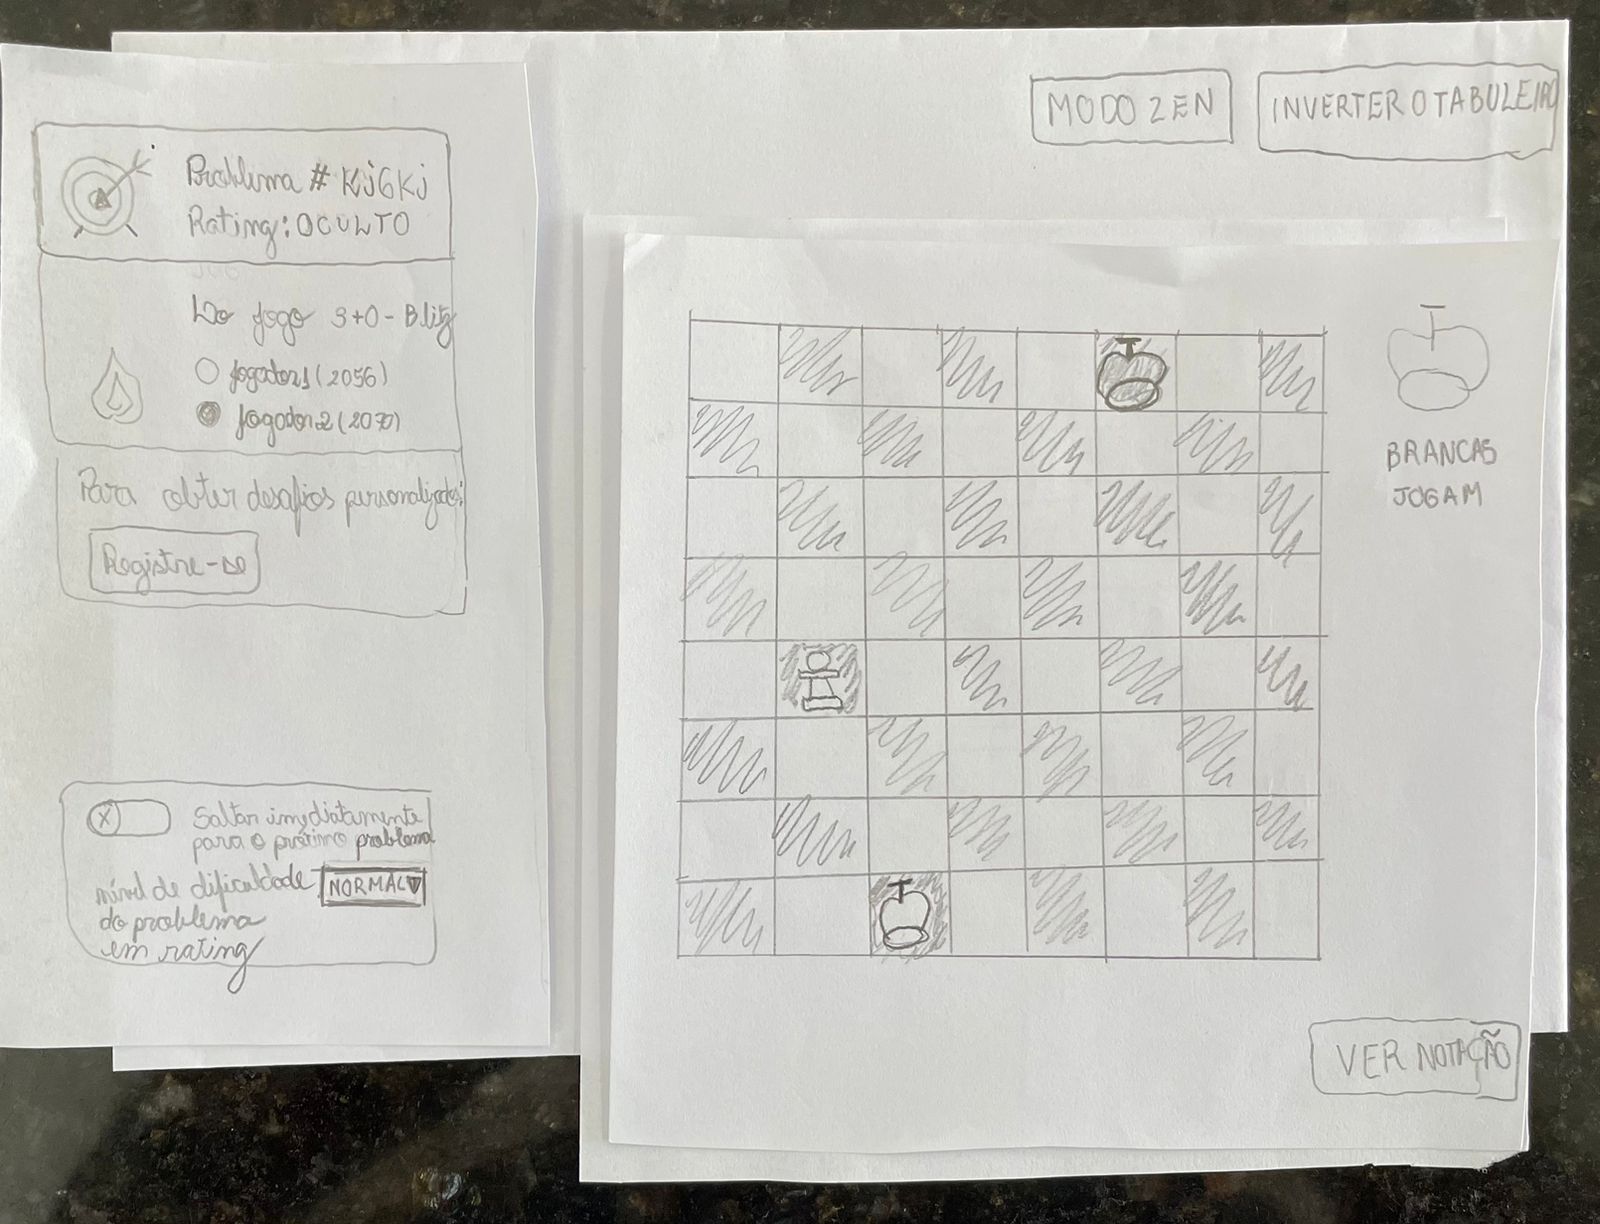 Problema # Kj6Kj
Rating: OCULTO
Do jogo 3+0 - Blitz
Jogador1 (2056)
Jogador2 (2070)
Para obter desafios personalizados:
Registre-se
Saltar imediatamente
para o próximo problema
nível de dificuldade NORMAL
do problema
em rating
MODO ZEN
INVERTER O TABULEIRO
BRANCAS
JOGAM
VER NOTAÇÃO